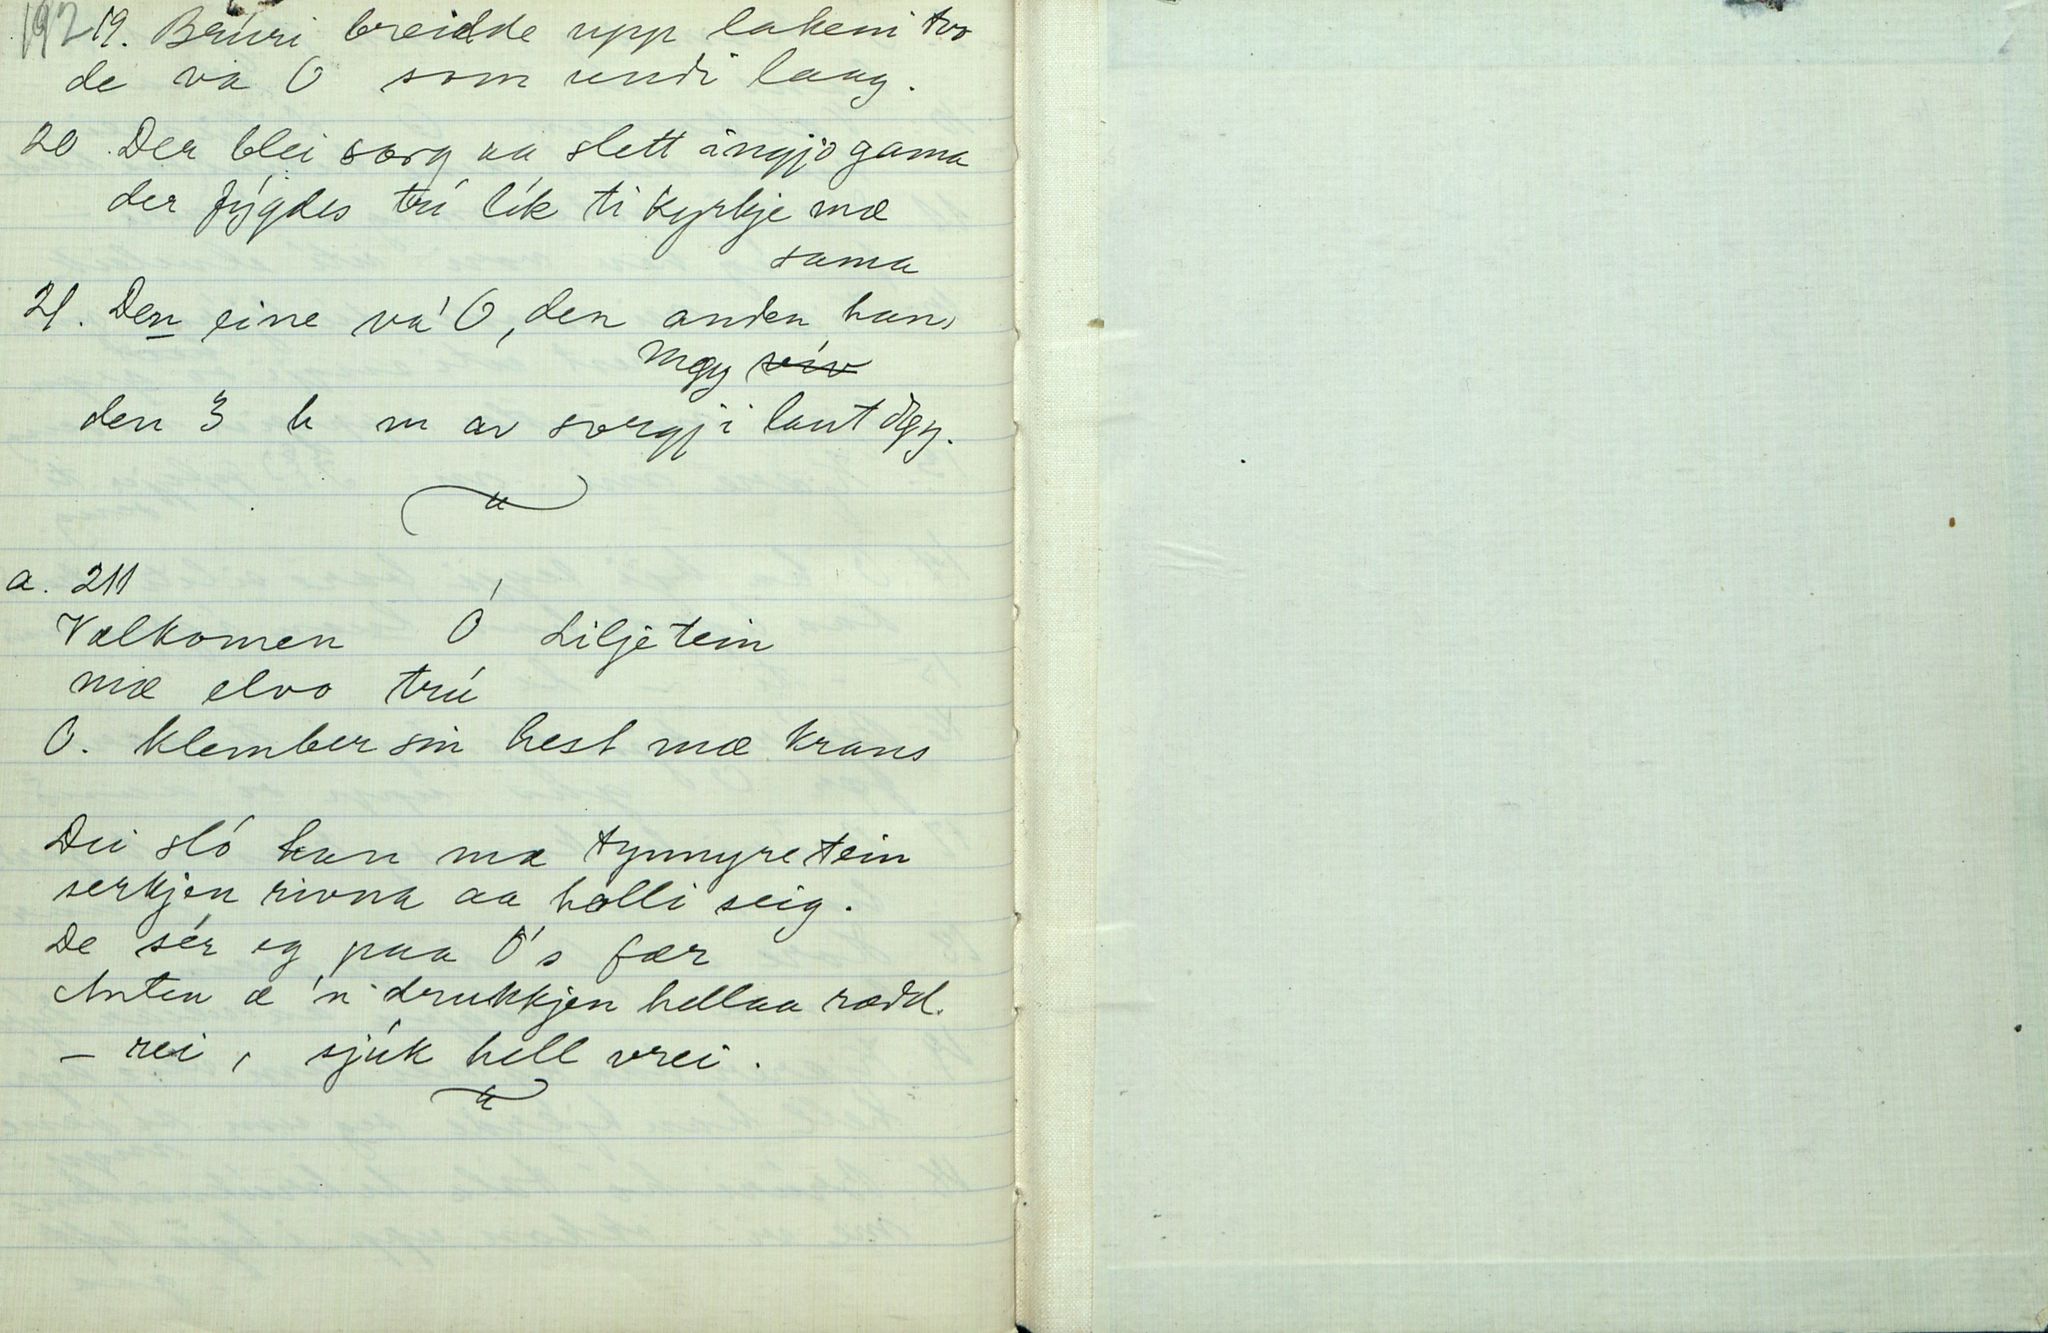 192
19. Brúri breidde upp lakeni tvo
de va O som undi laag.
20. Der blei sorg aa slett ingjo gama
der fýgdes trú lík ti kyrkje mæ
sama
21. Den eine va' O, den anden hans
mǫy viv
den 3 h m av sorgji laut døy.
a. 211
Vælkomen Ó Liljetein
mæ elvo trú
O. klember sin hest mæ krans
Dei sló han mæ tynnyretein
serkjen rivna aa holli seig.
De sér eg paa Ó's fær
Anten æ 'n drukkjen hellaa rædd.
– rei, sjúk hell vrei.